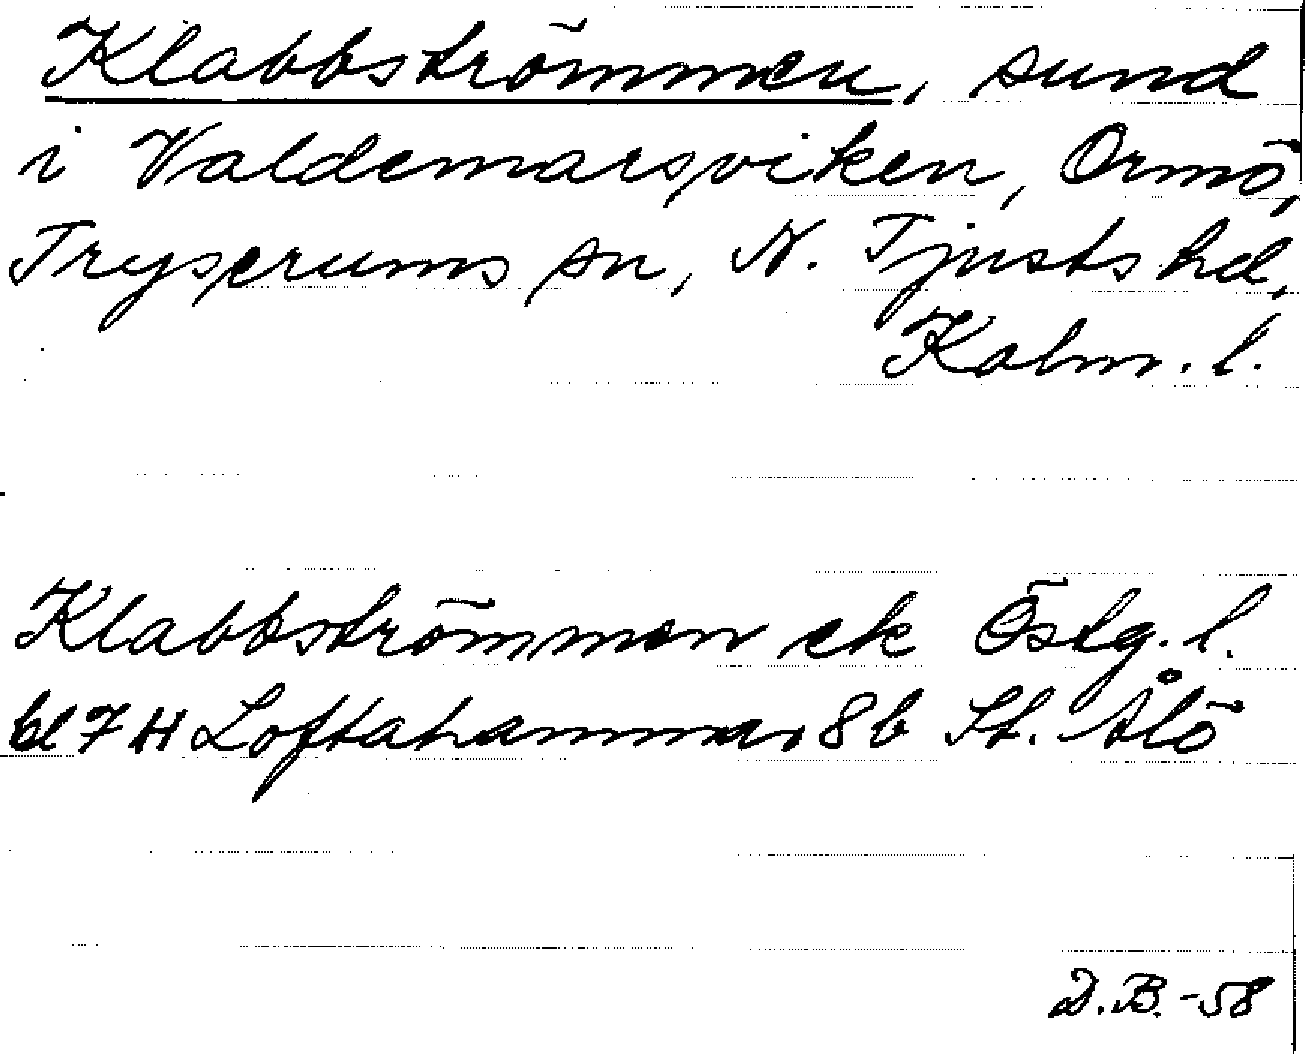 Klabbströmmen, sund
i Valdemarsviken, Ormö,
Tryserums sn, N. Tjusts hd,
Kalm. l.
Klabbströmmen ek Östg. l.
bl 7 H Loftahammar 8b St. Ålö
D.B. -58